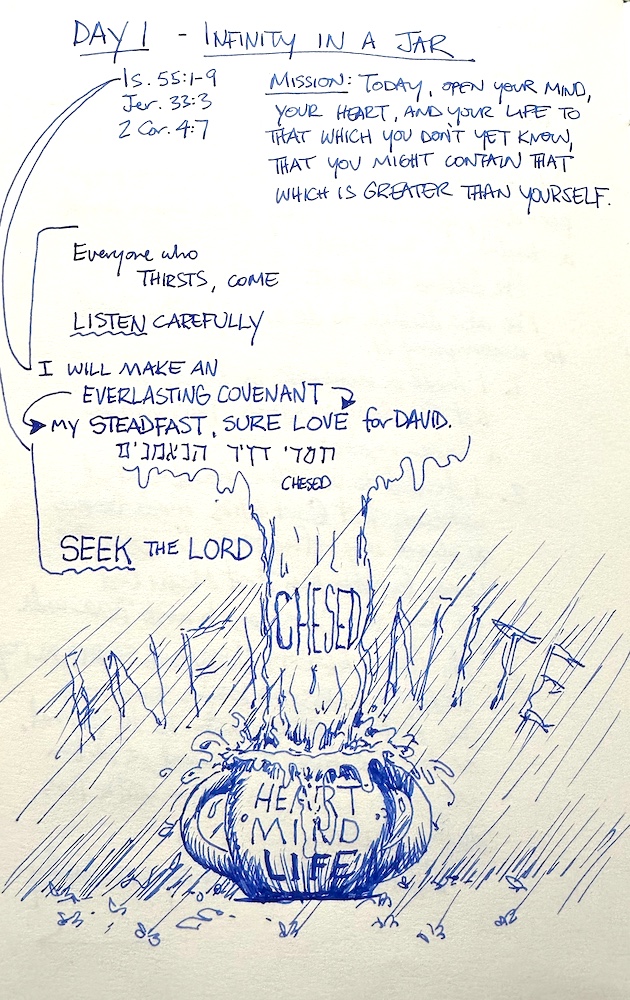 DAY 1 - INFINITY IN A JAR
Is. 55:1-9
Jer. 33:3
2 Cor. 4:7
MISSION: TODAY, OPEN YOUR MIND,
YOUR HEART, AND YOUR LIFE TO
THAT WHICH YOU DON'T YET KNOW,
THAT YOU MIGHT CONTAIN THAT
WHICH IS GREATER THAN YOURSELF.
Everyone who
THIRSTS, COME
LISTEN CAREFULLY
I WILL MAKE AN
EVERLASTING COVENANT
MY STEADFAST, SURE LOVE for DAVID.
חסדי דויד הנאמנים
CHESED
SEEK THE LORD
CHESED
INFINITE
HEART
MIND
LIFE